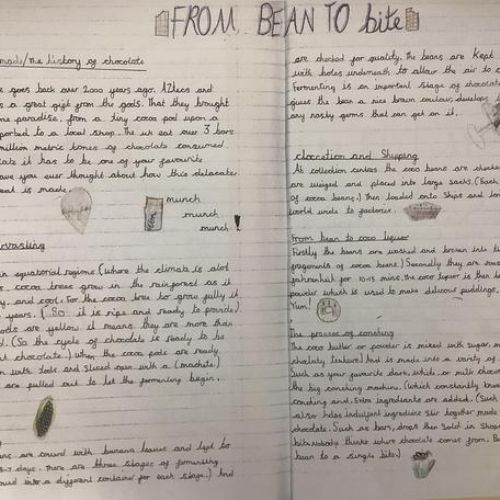 FROM BEAN TO bite
made/the history of chocolate
goes back over 2000 years ago. Aztecs and
s a great gift from the gods. That they brought
paradise, from a tiny cocoa pod upon a
ported to a local shop. The uk eat over 3 bars
million metric bones of chocolate consumed.
late it has to be one of your favourite
ave you ever thought about how this delacater
eat is made.
munch
munch
munch!
rvasting
in equatorial regions (where the climate is alot
cocoa trees grow in the rainforest as it
y, and cool. For the cocoa tree to grow fully it
years. (So it is ripe and ready to provide).
pods are yellow it means they are more than
(So the cycle of chocolate is ready to be
chocolate.) When the cocoa pods are ready
with and sliced open with a (machete)
are pulled out to let the fermenting begin.
are with banana leaves and
-7 days. there are three stages of fermenting
into a different container for each stage.) And
are checked for quality. The beans are kept
with holes underneath to allow the air to c
Fermenting is an important stage of chocolate
gives the bean a nice brown colour, develope
any nasty germs that can get on it.
and Shipping
At collection centres the coco beans are checke
are weiged and placed into large sacks. (Each
of cocoa beans.) Then loaded onto Ships and
world to factories.
From bean to coco liquor
Firstly the beans are washed and broken into
fragments of cocoa beans) Secondly they are roas
fahrenheit for 10-15 mins. the coco liquor is then
powder which is used to make delicous puddings.
Yum!
The process of conching
The coco butter or powder is mixed with sugar
And is made into a variety of
Such as your favourite dark, white, or milk choco
the big conching machine. (which constantly
conching and. Extra ingredients are added. (Such
also helps indulgent ingredients together made
chocolate. Such as bars, drops then Sold in Shops
thinks where chocolate comes from. Be
bean to a single bite.)